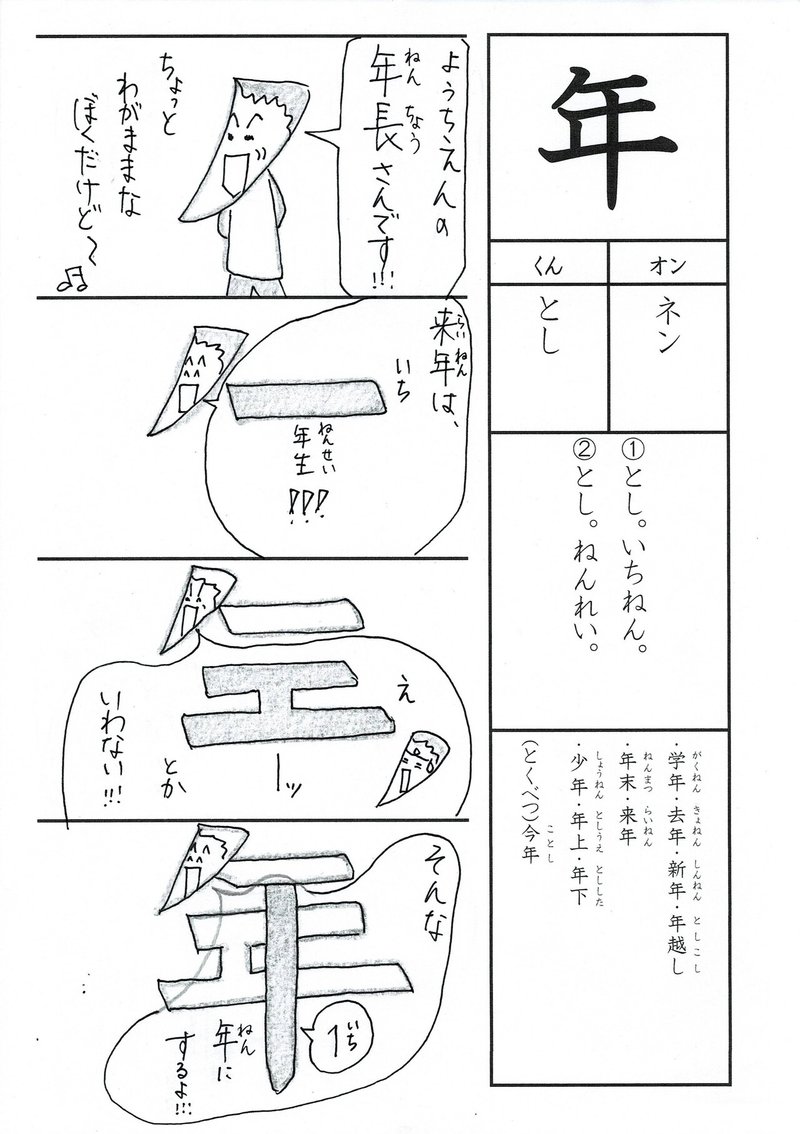 年
オン
ネン
くん
とし
①とし。いちねん。
②とし。ねんれい。
がくねん きょねん しんねん としこし
・学年・去年・新年・年越し
ねんまつ らいねん
・年末・来年
しょうねん としうえ とした
・少年・年上・年下
ことし
(とくべつ)今年
ようちえんの
ねんちょう
年長さんです!!!
ちょっと
わがままな
ぼくだけど〜♫
らいねん
来年は、
いち
一
ねんせい
年生!!!
え
エ
ーッ
とか
いわない!!!
そんな
いち
1
ねん
年に
するよ!!!